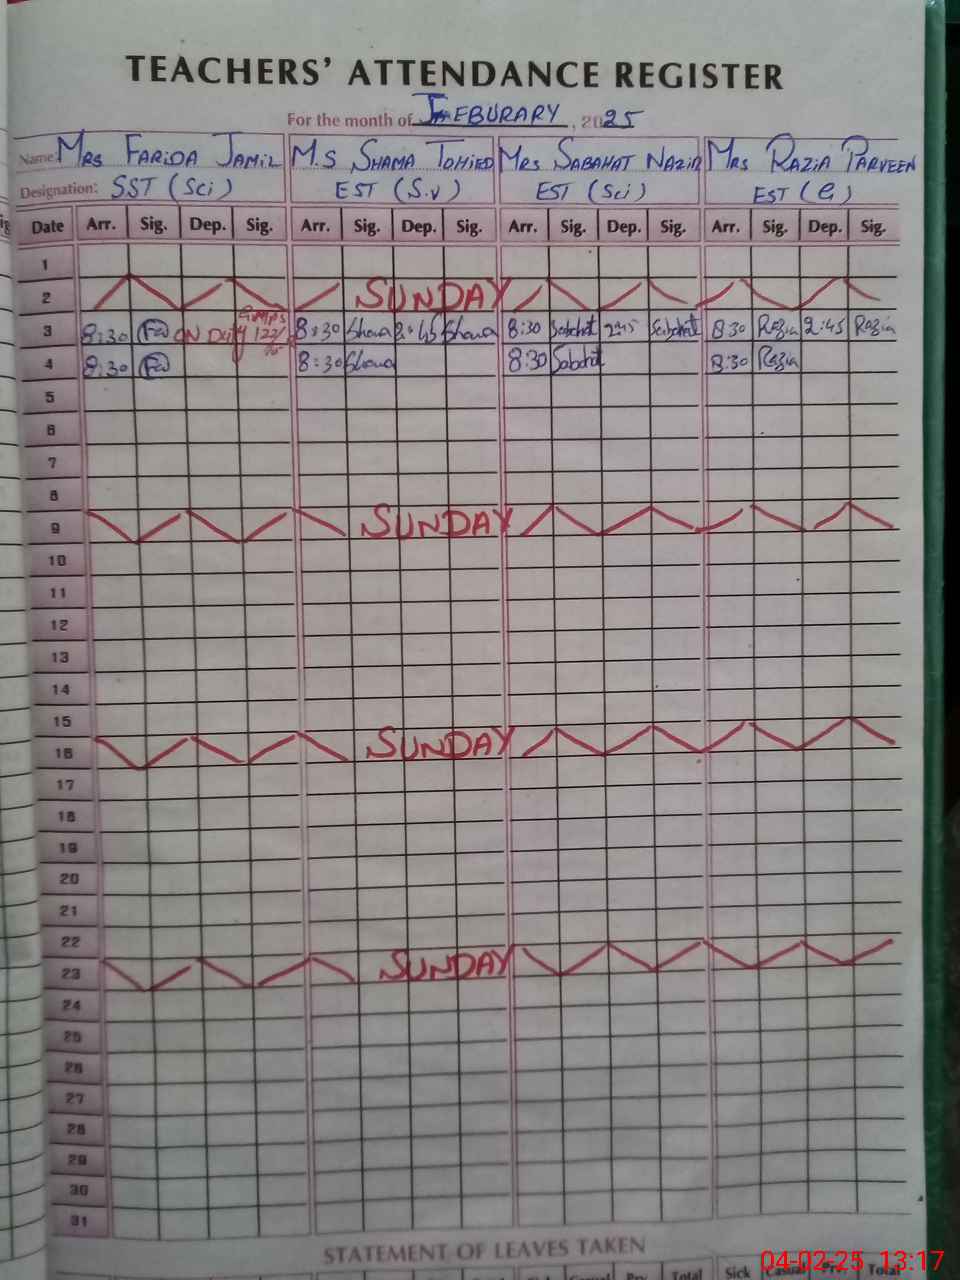 TEACHERS' ATTENDANCE REGISTER
For the month of FEBURARY, 2025
Name: MRS FARIDA JAMIL M.S SHAMA TOHIED MRS SABAHAT NAZIR MRS RAZIA PARVEEN
Designation: SST (Sci) EST (S.V) EST (Sci) EST (G)
Date Arr. Sig. Dep. Sig. Arr. Sig. Dep. Sig. Arr. Sig. Dep. Sig. Arr. Sig. Dep. Sig.
1
2 SUNDAY
3 8:30 ON Duty 8:30 Shama 2:45 Shama 8:30 Sabahat 2:45 Sabahat 8:30 Razia 2:45 Razia
4 8:30 8:30 Shama 8:30 Sabahat 8:30 Razia
5
6
7
8
9 SUNDAY
10
11
12
13
14
15
16 SUNDAY
17
18
19
20
21
22
23 SUNDAY
24
25
26
27
28
29
30
31
STATEMENT OF LEAVES TAKEN
Total Sick Casual Prv. Total
04-02-25 13:17